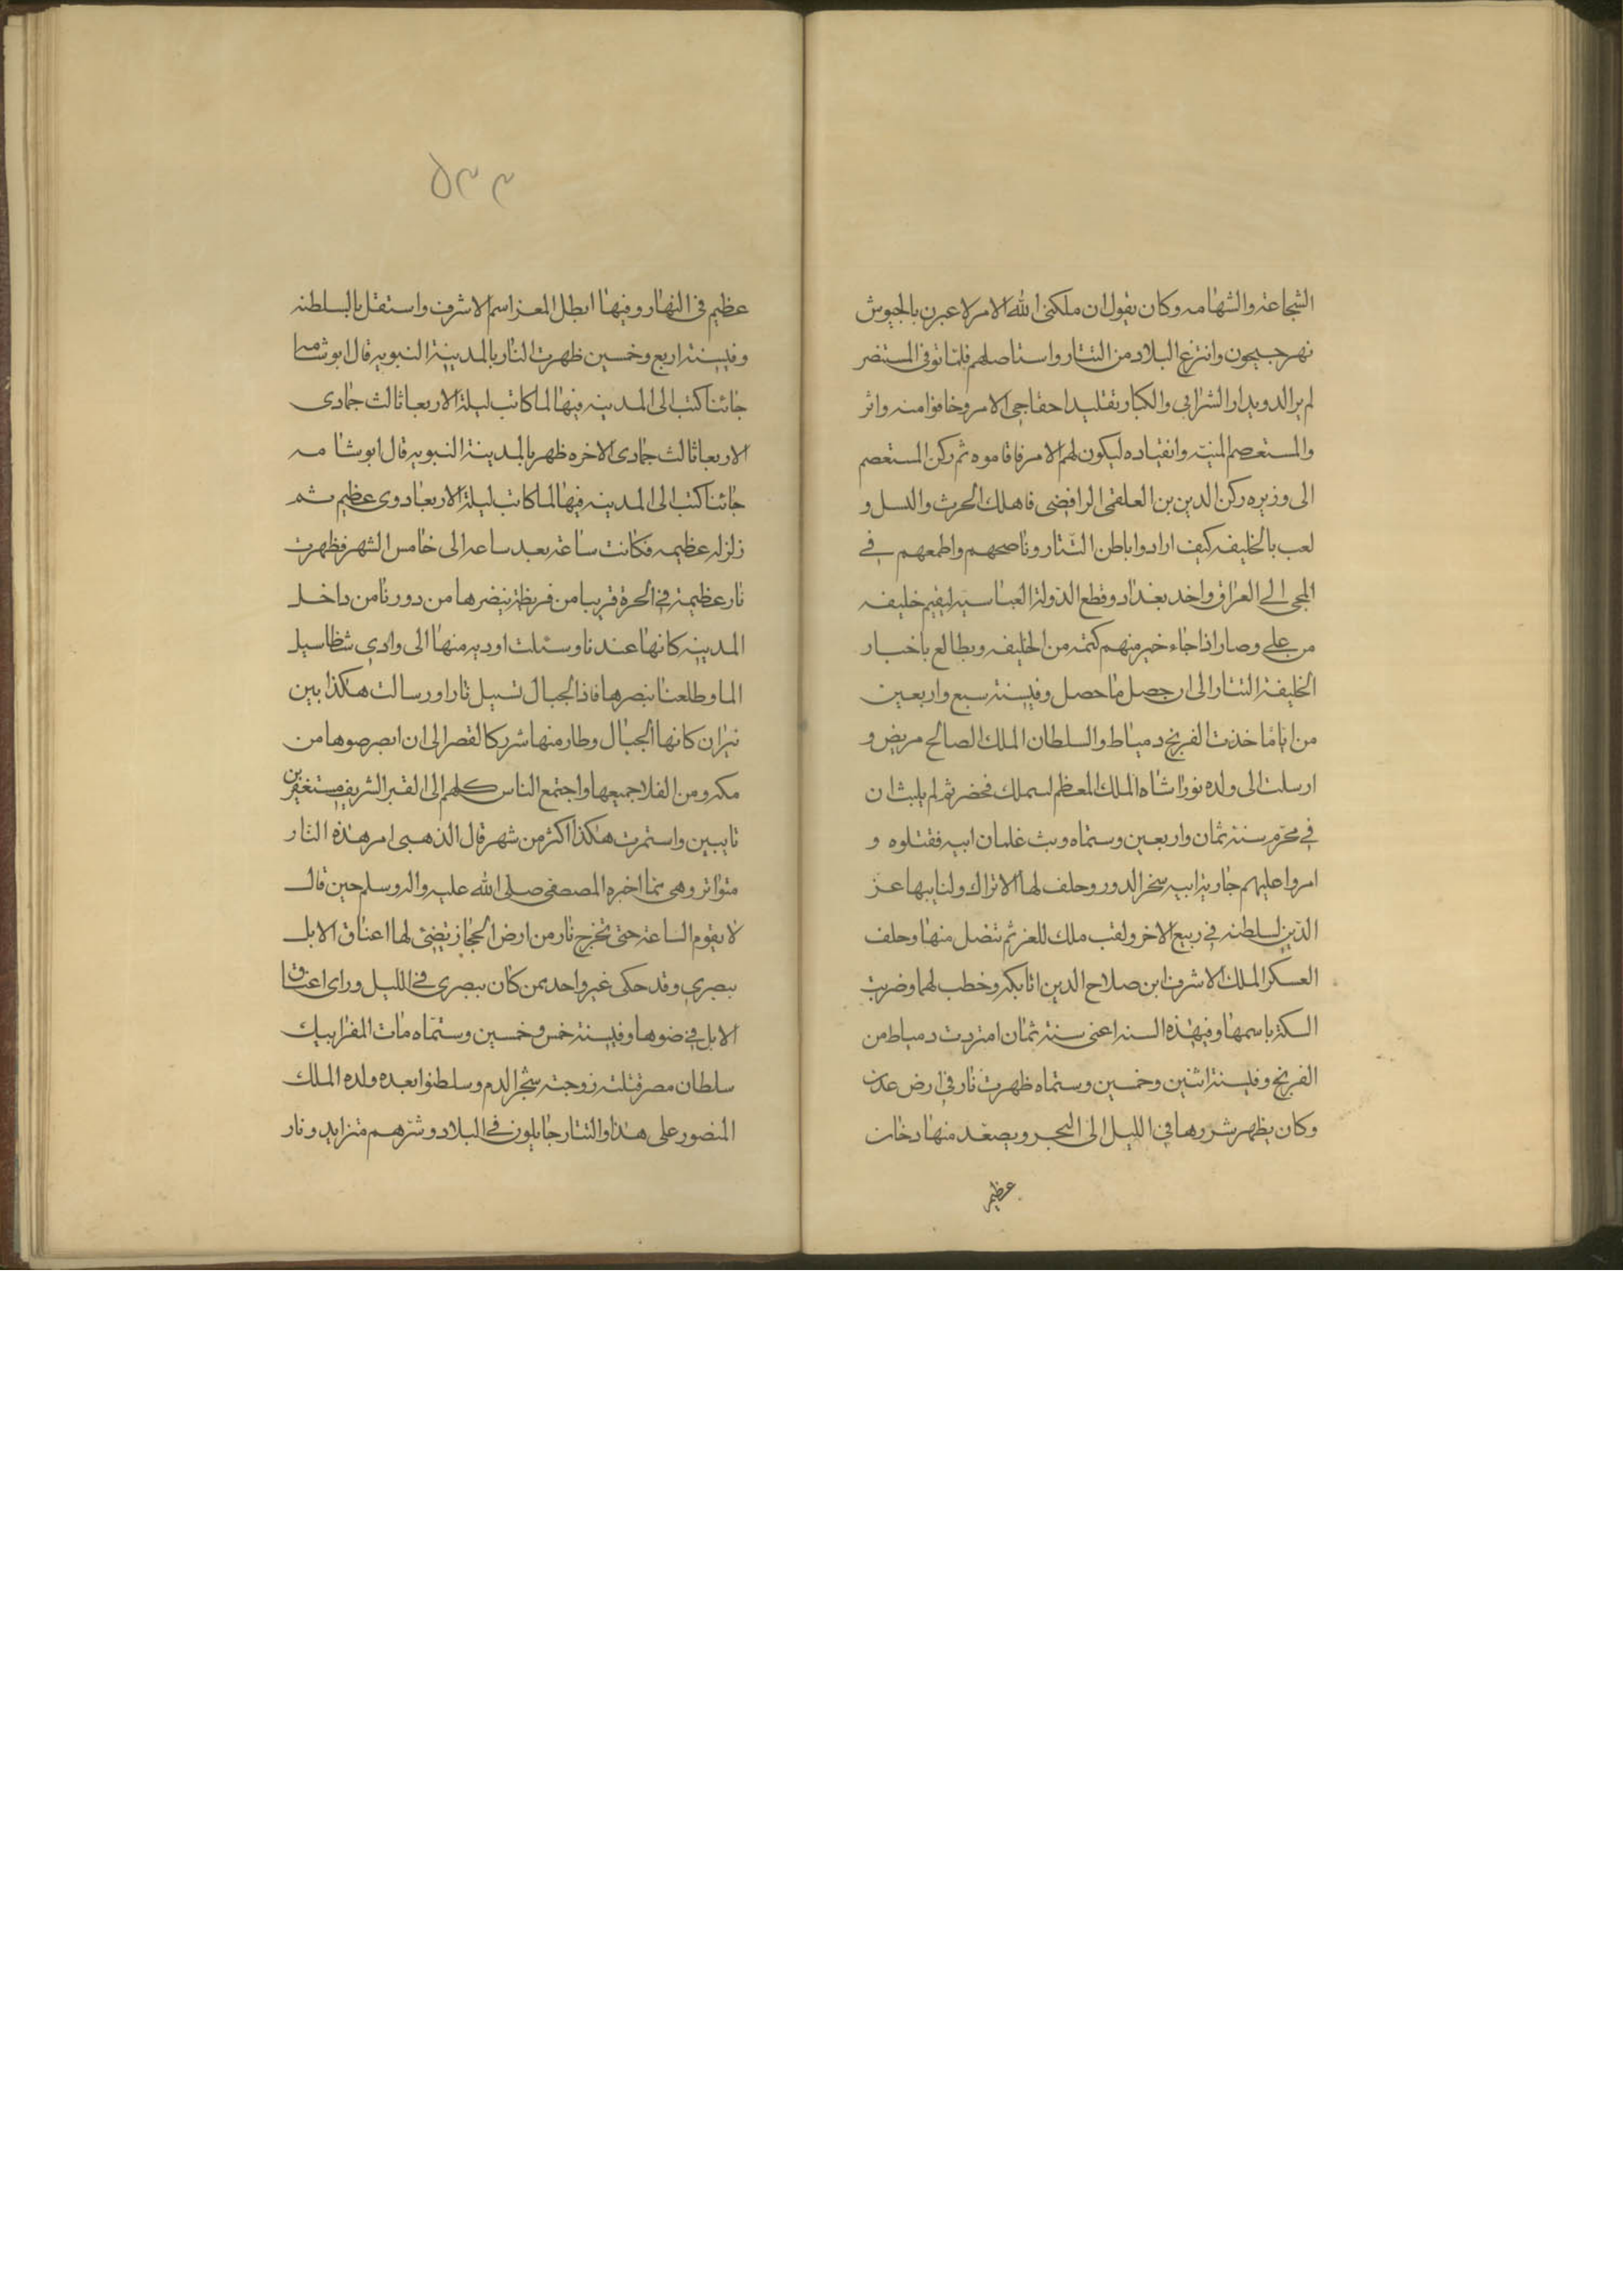 الشجاعة والشهامه وكان يقول ان ملكنى الله الامر لاعبرن بالجيوش
نهر جيحون وانتزع البلاد من التتار واستاصلهم فلما توفى المستنصر
لم ير الدويدار الشرابى والكبار تقليد احفاجى الامر وخافوا منه واثر
والمستعصم للينه وانقياده ليكون لهم الامر فاقاموه ثم ركن المستعصم
الى وزيره ركن الدين بن العلقمى الرافضى فاهلك الحرث والنسل و
لعب بالخليفه كيف ارادوا باطن التتار وناصحهم واطمعهم في
المجى الى العراق واخد بغداد وقطع الدولة العباسيه ليقيم خليفه
من علي وصار اذا جاء خبر منهم كتمه من الخليفه ويطالع باخبار
الخليفة التتار الى ان حصل ما حصل وفي سنة سبع واربعين
من اياما خذت الفرنج دمياط والسلطان الملك الصالح مريض و
ارسلت الى ولده نورانشاه الملك المعظم لسملك فحضر ثم لم يلبث ان
في محرم سنة ثمان واربعين وستماه وبث غلمان ابيه فقتلوه و
امروا عليهم جارية ابيه سخر الدور وحلف لها الاتراك ولنايبها عز
الدين لسلطنه في ربيع الاخر ولقب ملك للعز ثم تنصل منها وحلف
العسكر الملك الاشرف ابن صلاح الدين اتابكه وخطب لهما وضربت
السكة باسمها وفي هذه السنه اعنى سنة ثمان امتردت دمياط من
الفرنج وفي سنة اثنين وخمسين وستماه ظهرت نار في ارض عدن
وكان يظهر شررها في الليل الى البحر ويصعد منها دخان
عظيم
٥٣٣
عظيم فى النهار وفيها ابطل المعز اسم الاشرف واستقل بالسلطنه
وفي سنة اربع وخمسين ظهرت النار بالمدينة النبويه قال ابو شامه
جائنا كتب الى المدينه فيها لما كانت ليلة الاربعا ثالث جمادى
الاربعا ثالث جمادى الاخره ظهر بالمدينة النبويه قال ابو شامه
جائنا كتب الى المدينه فيها لما كانت ليلة الاربعا دوى عظيم ثم
زلزله عظيمه فكانت ساعة بعد ساعه الى خامس الشهر فظهرت
نار عظيمة في الحرة قريبا من قريظة ننضرها من دورنا من داخل
المدينه كانها عندنا وسئلت اوديه منها الى وادي شظا سيل
الما وطلعنا نبصرها فاذا الجبال تسيل نارا ورسالت هكذا بين
نيران كانها الجبال وطار منها شرر كالقصر الى ان ابصر ضوها من
مكه ومن الفلا جميعها واجتمع الناس كلهم الى القبر الشريف مستغفرين
تايبين واستمرت هكذا اكثر من شهر قال الذهبى امر هذه النار
متواتر وهى مما اخبره المصصفى صلى الله عليه واله وسلم حين قال
لا يقوم الساعة حتى تخرج نار من ارض الحجاز تضئى لها اعناق الابل
ببصرى وقد حكى غير واحد ممن كان ببصرى في الليل وراى اعناق
الابل في ضوها وفي سنة خمس وخمسين وستماه مات المفرايبك
سلطان مصر قتلته زوجته شجر الدم وسلطنوا بعده ولده الملك
المنصور على هذا والتتار جايلون في البلاد وشرهم متزايد ونار